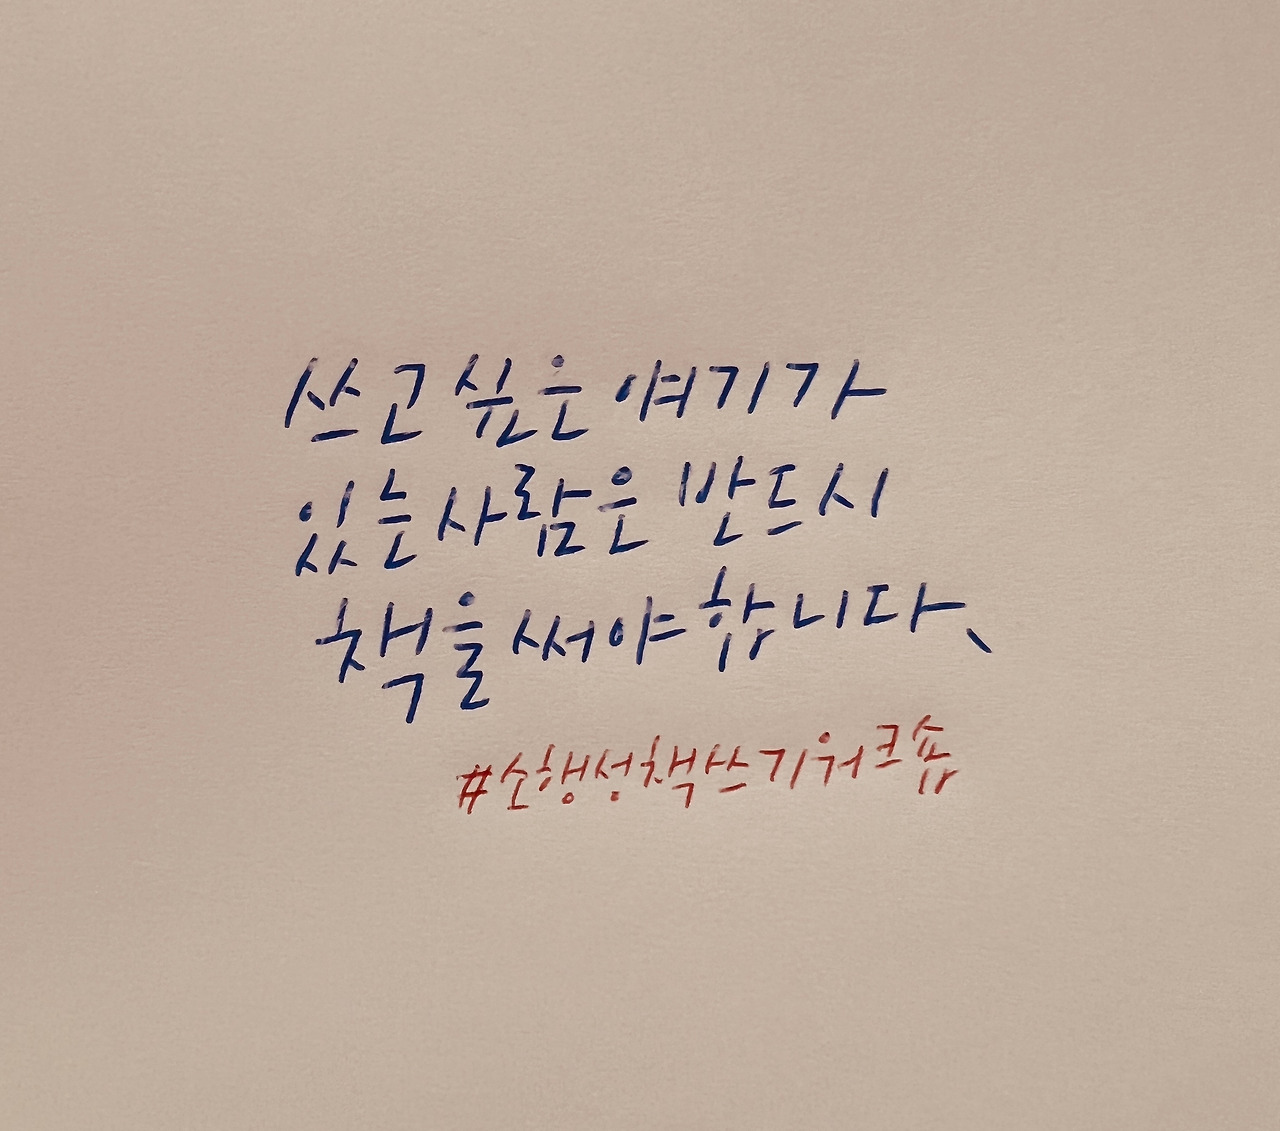 쓰고 싶은 얘기가
있는 사람은 반드시
책을 써야 합니다.
#소행성책쓰기워크숍